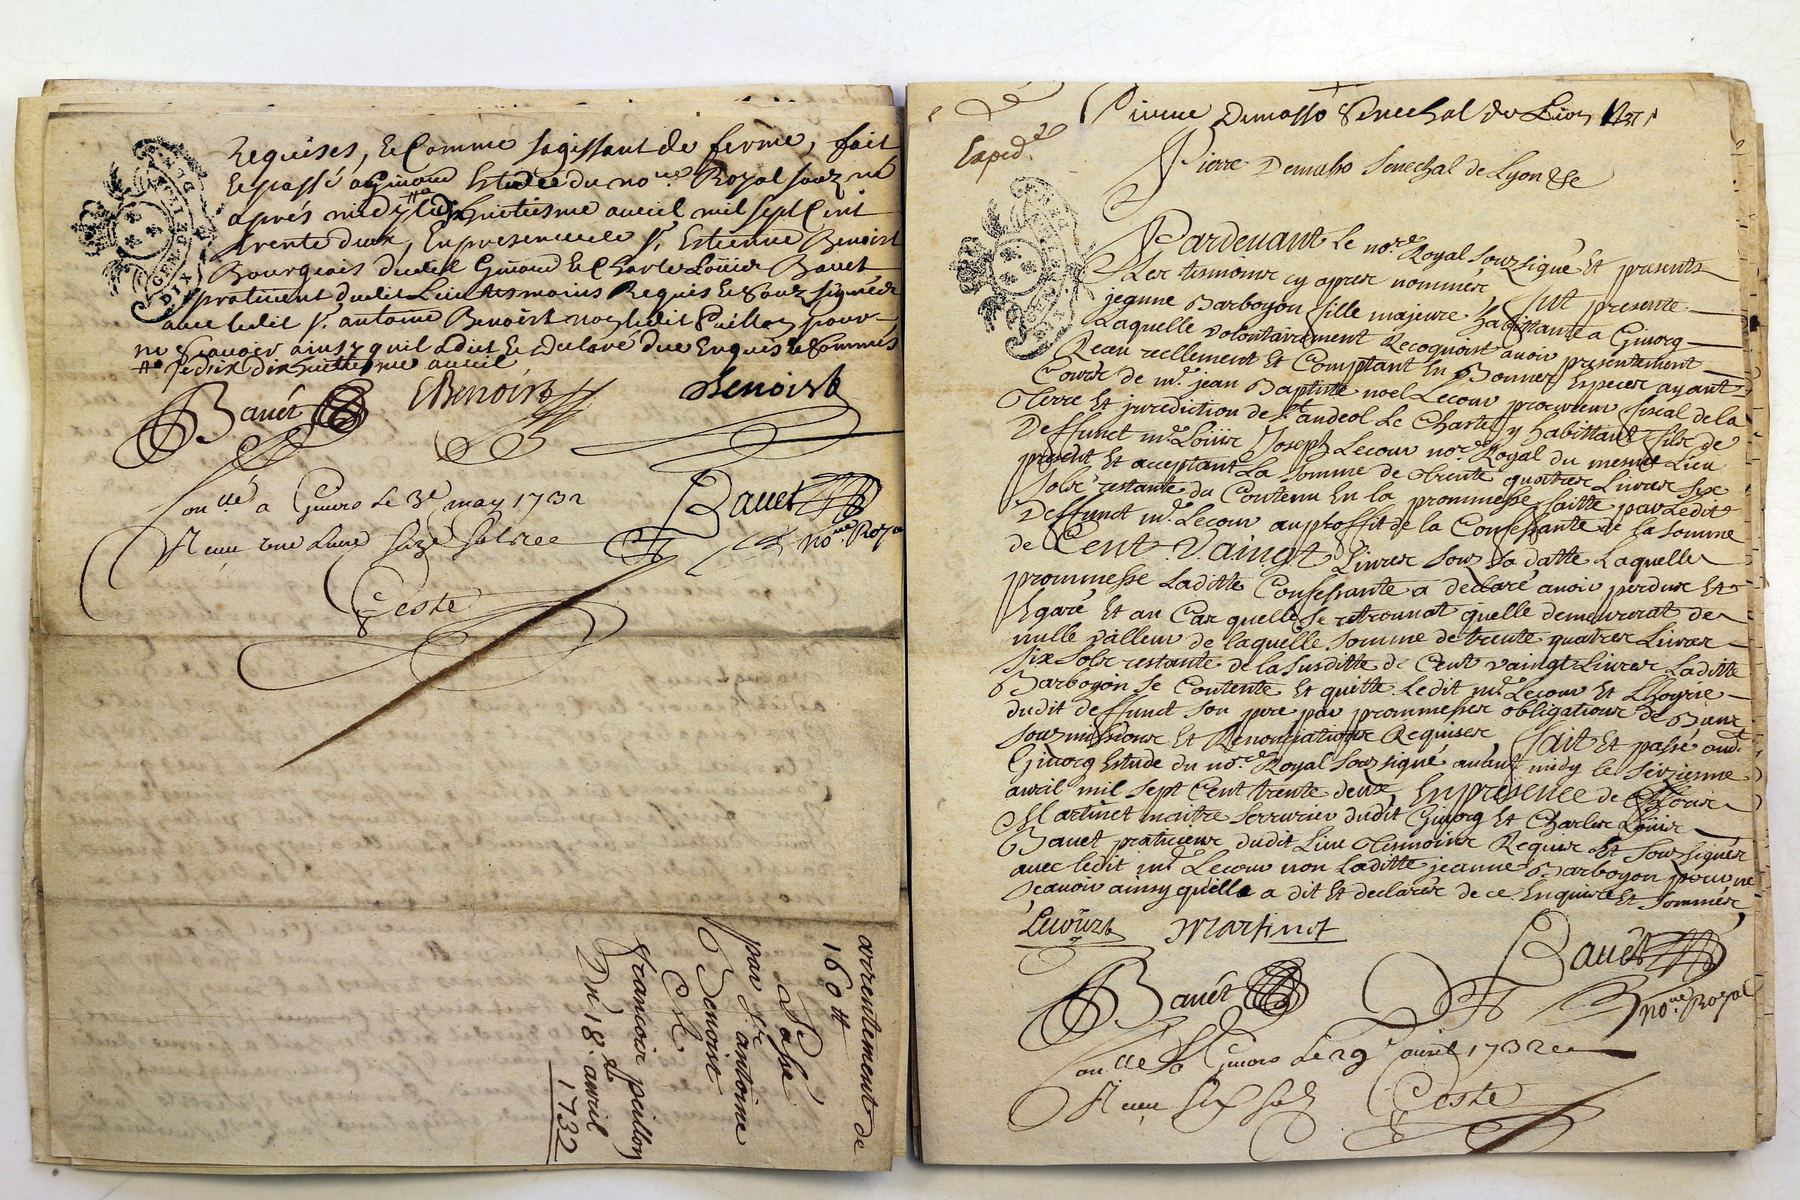 Requises, Et Comme sagissant de ferme, fait
Et passé a Giuord Estude du no.re Royal souz né
aprés midy le dix huitiesme auril mil sept Cent
trente deux, En presence de Sr. Estienne Benoist
Bourgeois dudit Giuord Et Charle Loüis Bauet
pratitient dudit Lieu tesmoins Requis Et Souz signées
auec ledit Sr. antoine Benoist non ledit Peillon pour
ne scauoir ainsy quil a dit Et déclaré de Enquis Et Sommés
dix huittiesme auril
Bauét EBenoist Benoist
Con.llé a Giuors Le 3e may 1732
Receu une Liure Seize Sols
Bauet
no.re Roya
Ceste
arrentement de
160 tt
Passé
par Sr antoine
Benoist
A
francois peillon
Du 18.e avril
1732
Pierre Demasso Senechal de Lion
Exped.ée
Pierre Demasso Senechal de Lyon &e
Pardeuant Le no.re Royal Souzsigné Et presents
Les tesmoins cy apres nommés fut presente
jeanne Barboyon fille majeure habitante a Giuorg
Laquelle volontairement Recognoist auoir presentement
Receu reellement Et Comptant En Bonnes Especes ayant
Cours de m.e jean Baptiste noel Lecour procureur fiscal de la
terre Et jurediction de St andeol Le Chasteau y habittant fils de
Deffunct m.e Loüis Joseph Lecour no.re Royal du mesme Lieu
present Et acceptant La Somme de trente quattres Liures Six
Sols restante du Contenu En la prommesse faitte par Ledit
Deffunct m.e Lecour au proffit de la Confessante de la Somme
de Cent Vaingt Liures Souz Sa datte Laquelle
prommesse Laditte Confessante a declaré auoir perdue Et
Egaré Et au Cas quelle Se retrouuat quelle demeurerat de
nulle valleur de laquelle Somme de trente quatres Liures
Six Sols restante de la Susditte de Cent vaingt Liures Laditte
Barboyon Se Contente Et quitte Ledit m.e Lecour Et Lhoyrie
dudit deffunct Son pere par prommesses obligations de Biens
Souzmissions Et Renonciations Requises fait Et passé aud.t
Giuorg Estude du no.re Royal Souzsigné auant midy le Seizieme
auril mil Sept Cent trente deux En presence de Loüis
Martinet maitre Serrurier dudit Giuorg Et Charles Loüis
Bauet praticien dudit Lieu tesmoins Requis Et Souzsignés
auec ledit m.e Lecour non laditte jeanne Barboyon pour ne
Scauoir ainsy quelle a dit Et declarés de ce Enquise Et Sommés,
Lecourt Martinet Bauét
Bauét no.re Royal
Con.llé a Giuors Le 29e auril 1732
Receu Six Sols Ceste